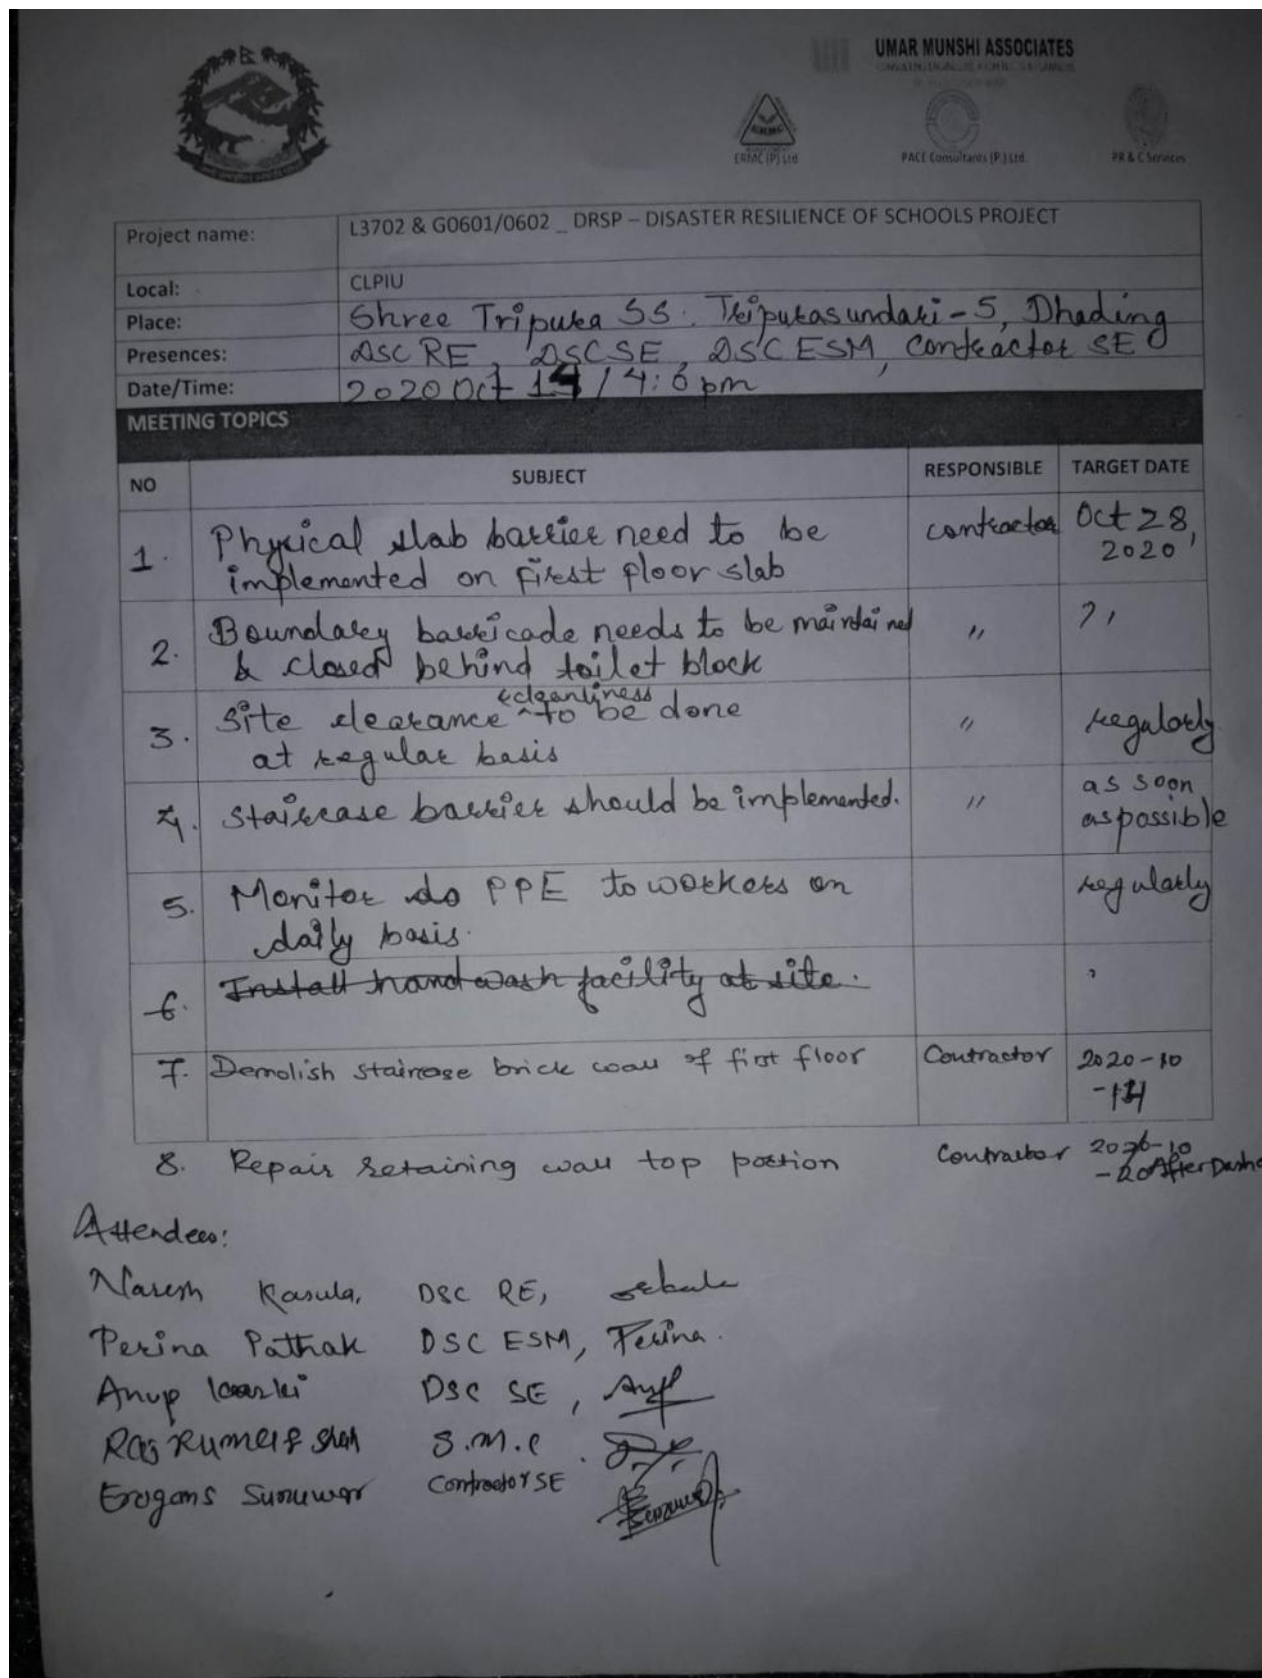 UMAR MUNSHI ASSOCIATES
ERMC (P) Ltd
PACE Consultants (P.) Ltd.
PR & C Services
Project name: L3702 & G0601/0602 _ DRSP – DISASTER RESILIENCE OF SCHOOLS PROJECT
Local: CLPIU
Place: Shree Tripura SS. Tripurasundari-5, Dhading
Presences: DSC RE, DSCSE, DSC ESM, Contractor SE
Date/Time: 2020 Oct 14 / 4:6 pm
MEETING TOPICS
NO SUBJECT RESPONSIBLE TARGET DATE
1. Physical slab barrier need to be contractor Oct 28,
implemented on first floor slab 2020
2. Boundary barricade needs to be maintained " "
& closed behind toilet block
& cleanliness
3. Site clearance ^ to be done " regularly
at regular basis
4. Staircase barrier should be implemented. " as soon
as possible
5. Monitor do PPE to workers on regularly
daily basis.
6. Install hand wash facility at site.
7. Demolish staircase brick wall of first floor Contractor 2020-10
-14
8. Repair retaining wall top portion Contractor 2020-10
-20 After
Attendees:
Naresh Kasula, DSC RE,
Perina Pathak DSC ESM, Perina.
Anup Karki DSC SE, Anup
Raj Kumar Shah S.M.C
Sunuwar Contractor SE